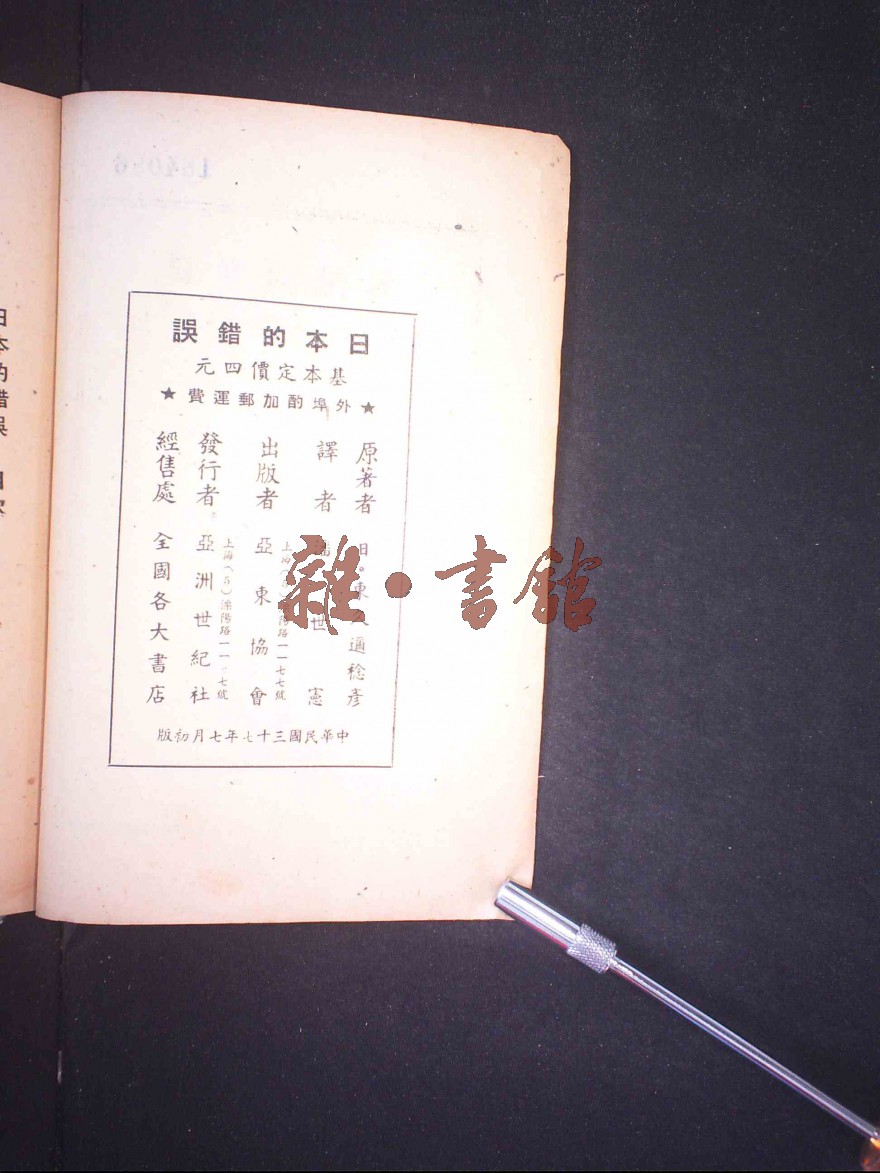 日本的錯誤
基本定價四元
★外埠酌加郵運費★
原著者 日・東久邇稔彦
譯者 潘世憲
出版者 亞東協會
上海(5)溧陽路一一七七號
發行者 亞洲世紀社
上海(5)溧陽路一一七七號
經售處 全國各大書店
中華民國三十七年七月初版
雜・書館
日本的錯誤 目次